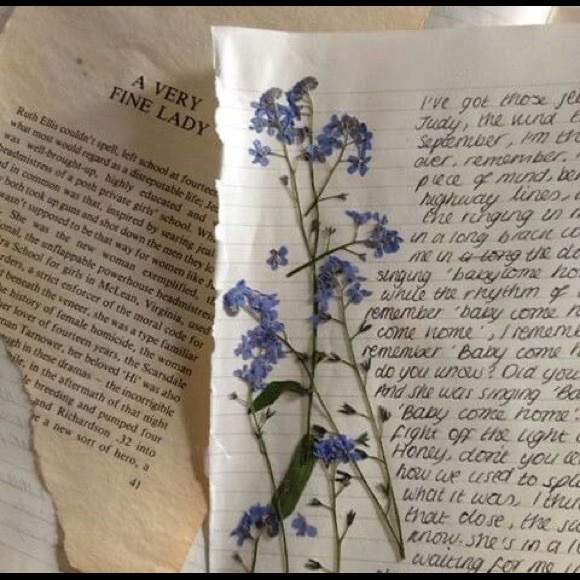 A VERY
FINE LADY
Ruth Ellis couldn't spell, left school at fourteen
what most would regard as a disreputable life. Je
was well-brought-up, highly educated and
headmistress of a posh private girls' school. Wh
in common was that, inspired by searing jeal
both took up guns and shot down the men they lo
wasn't supposed to be that way for women like J
She was the new woman exemplified,
onal, the unflappable powerhouse headmistres
ra School for girls in McLean, Virginia, used
orders, a strict enforcer of the moral code for
beneath the veneer, she was a type familiar
history of female homicide, the woman
her lover of fourteen years, the Scarsdale
man Tarnower, her beloved 'Hi' was also
in these dramas — the incorrigible
in the aftermath of that night
breeding and pumped four
and Richardson .32 into
e a new sort of hero, a
41
I've got those
Judy, the wind
September, I'm
over, remember.
piece of mind,
highway lines,
the ringing in
in a long black
me in a long
singing 'baby come ho
while the rhythm of
remember 'baby come h
come home', I rememb
remember 'Baby come h
do you know? Did you
And she was singing 'Ba
'Baby come home
fight off the light
Honey, don't you
how we used to
what it was, I thin
that close, the
know. she's in a l
waiting for me